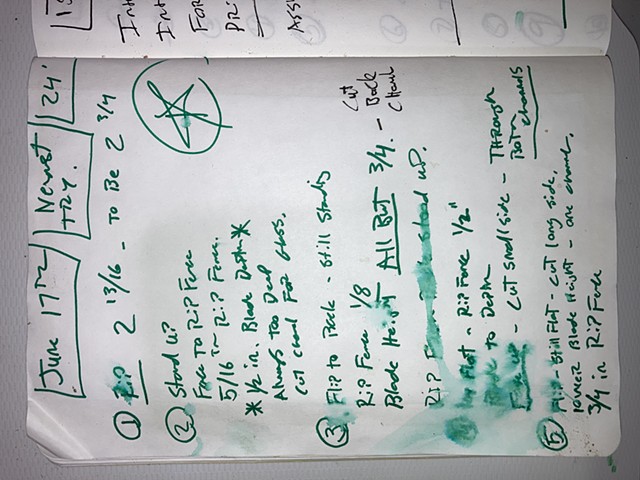 June 17th Newest TRY. 24'
① Rip 2 13/16 - To Be 2 3/4
② Stand up
Face To Rip Fence
5/16 in Rip Fence.
* 1/2 in. Blade Depth *
Always Too Deep
Cut Chanl For Glass.
③ Flip to Back - Still Standing
Rip Fence 1/8
Blade Height All But 3/4. - Cut Back Chanl
Rip Stand up.
Flat - Rip Fence 1/2"
to Depth
- Cut small side - Through Both Channels
⑤ Flip - Still Flat - Cut long side,
lower Blade Height - one channel.
3/4 in Rip Fence